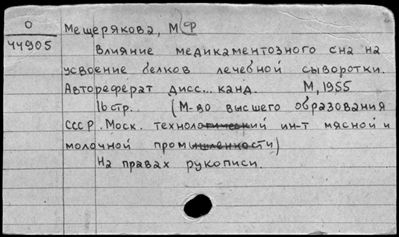 О
44905
Мещерякова, М Ф
Влияние медикаментозного сна на
усвоение белков лечебной сыворотки.
Автореферат дисс... канд. М, 1955
16 стр. (М-во высшего образования
СССР. Моск. технологический ин-т мясной и
молочной промышленности)
На правах рукописи.